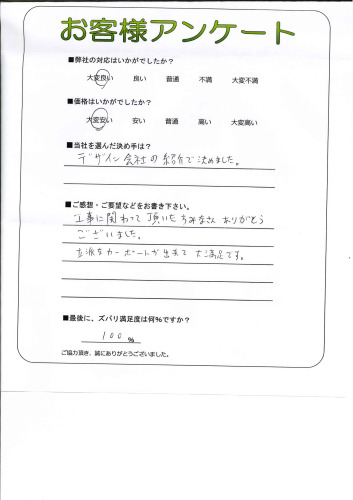 お客様アンケート
■弊社の対応はいかがでしたか？
大変良い 良い 普通 不満 大変不満
■価格はいかがでしたか？
大変安い 安い 普通 高い 大変高い
■当社を選んだ決め手は？
デザイン会社の紹介で決めました。
■ご感想・ご要望などをお書き下さい。
工事に関わって頂いたみなさんありがとう
ございました。
立派なカーポートが出来て大満足です。
■最後に、ズバリ満足度は何%ですか？
100%
ご協力頂き、誠にありがとうございました。